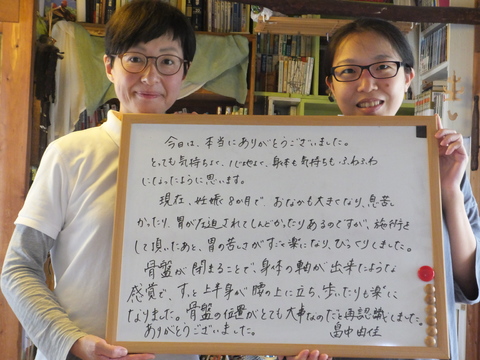 今日は、本当にありがとうございました。
とっても気持ちよく、心地よく、身体も気持ちもふわふわ
になったように思います。
現在、妊娠8か月で、おなかも大きくなり、息苦し
かったり、胃が圧迫されてしんどかったりあるのですが、施術を
して頂いたあと、胃の苦しさがすごく楽になり、びっくりしました。
骨盤が閉まることで、身体の軸が出来たような
感覚で、すっと上半身が腰の上に立ち、歩いたりも楽に
なりました。骨盤の位置がとても大事なのだと再認識しました。
ありがとうございました。
畠中由佳